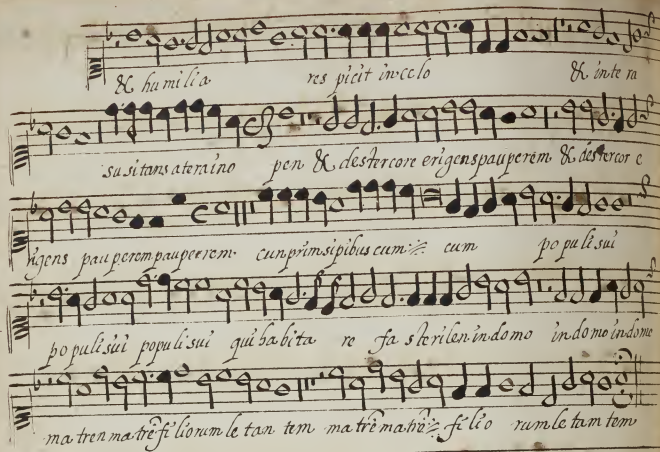 & humilia res picit in celo & in te ra
susitans a tera ino pen & destercore erigens pauperem & destercor e
rigens pauperem pauperrem cun prinsipibus cum ·//· cum populi sui
populi sui populi sui qui habita re fa sterilen in domo in domo in domo
matren matrē filiorum le tan tem matrē matrē ·//· filio rum le tam tem